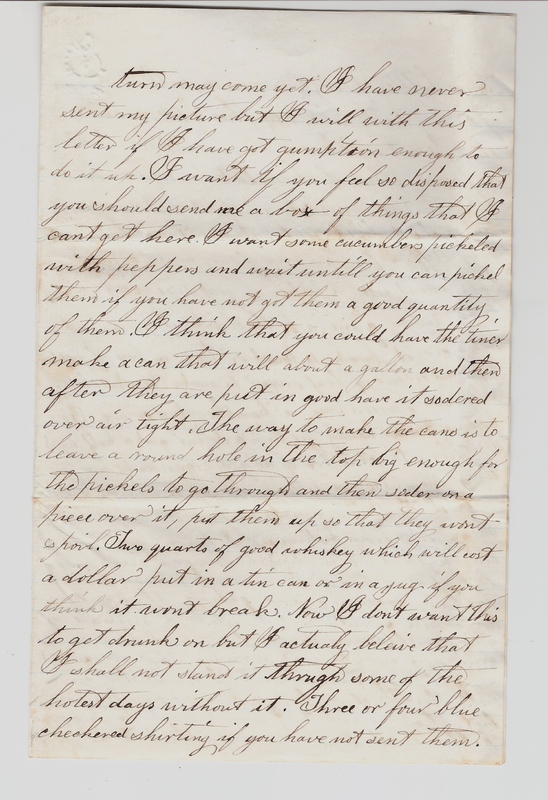 turn may come yet. I have never
sent my picture but I will with this
letter if I have got gumption enough to
do it up. I want if you feel so disposed that
you should send me a box of things that I
cant get here. I want some cucumbers pickeled
with peppers and wait untill you can pickel
them if you have not got them a good quantity
of them. I think that you could have the tiner
make a can that will about a gallon and then
after they are put in good have it sodered
over air tight. The way to make the cans is to
leave a round hole in the top big enough for
the pickels to go through and then soder on a
piece over it, put them up so that they wont
spoil. Two quarts of good whiskey which will cost
a dollar put in a tin can or in a jug if you
think it wont break. Now I dont want this
to get drunk on but I actualy beleive that
I shall not stand it thrugh some of the
hotest days without it. Three or four blue
checkered shirting if you have not sent them.